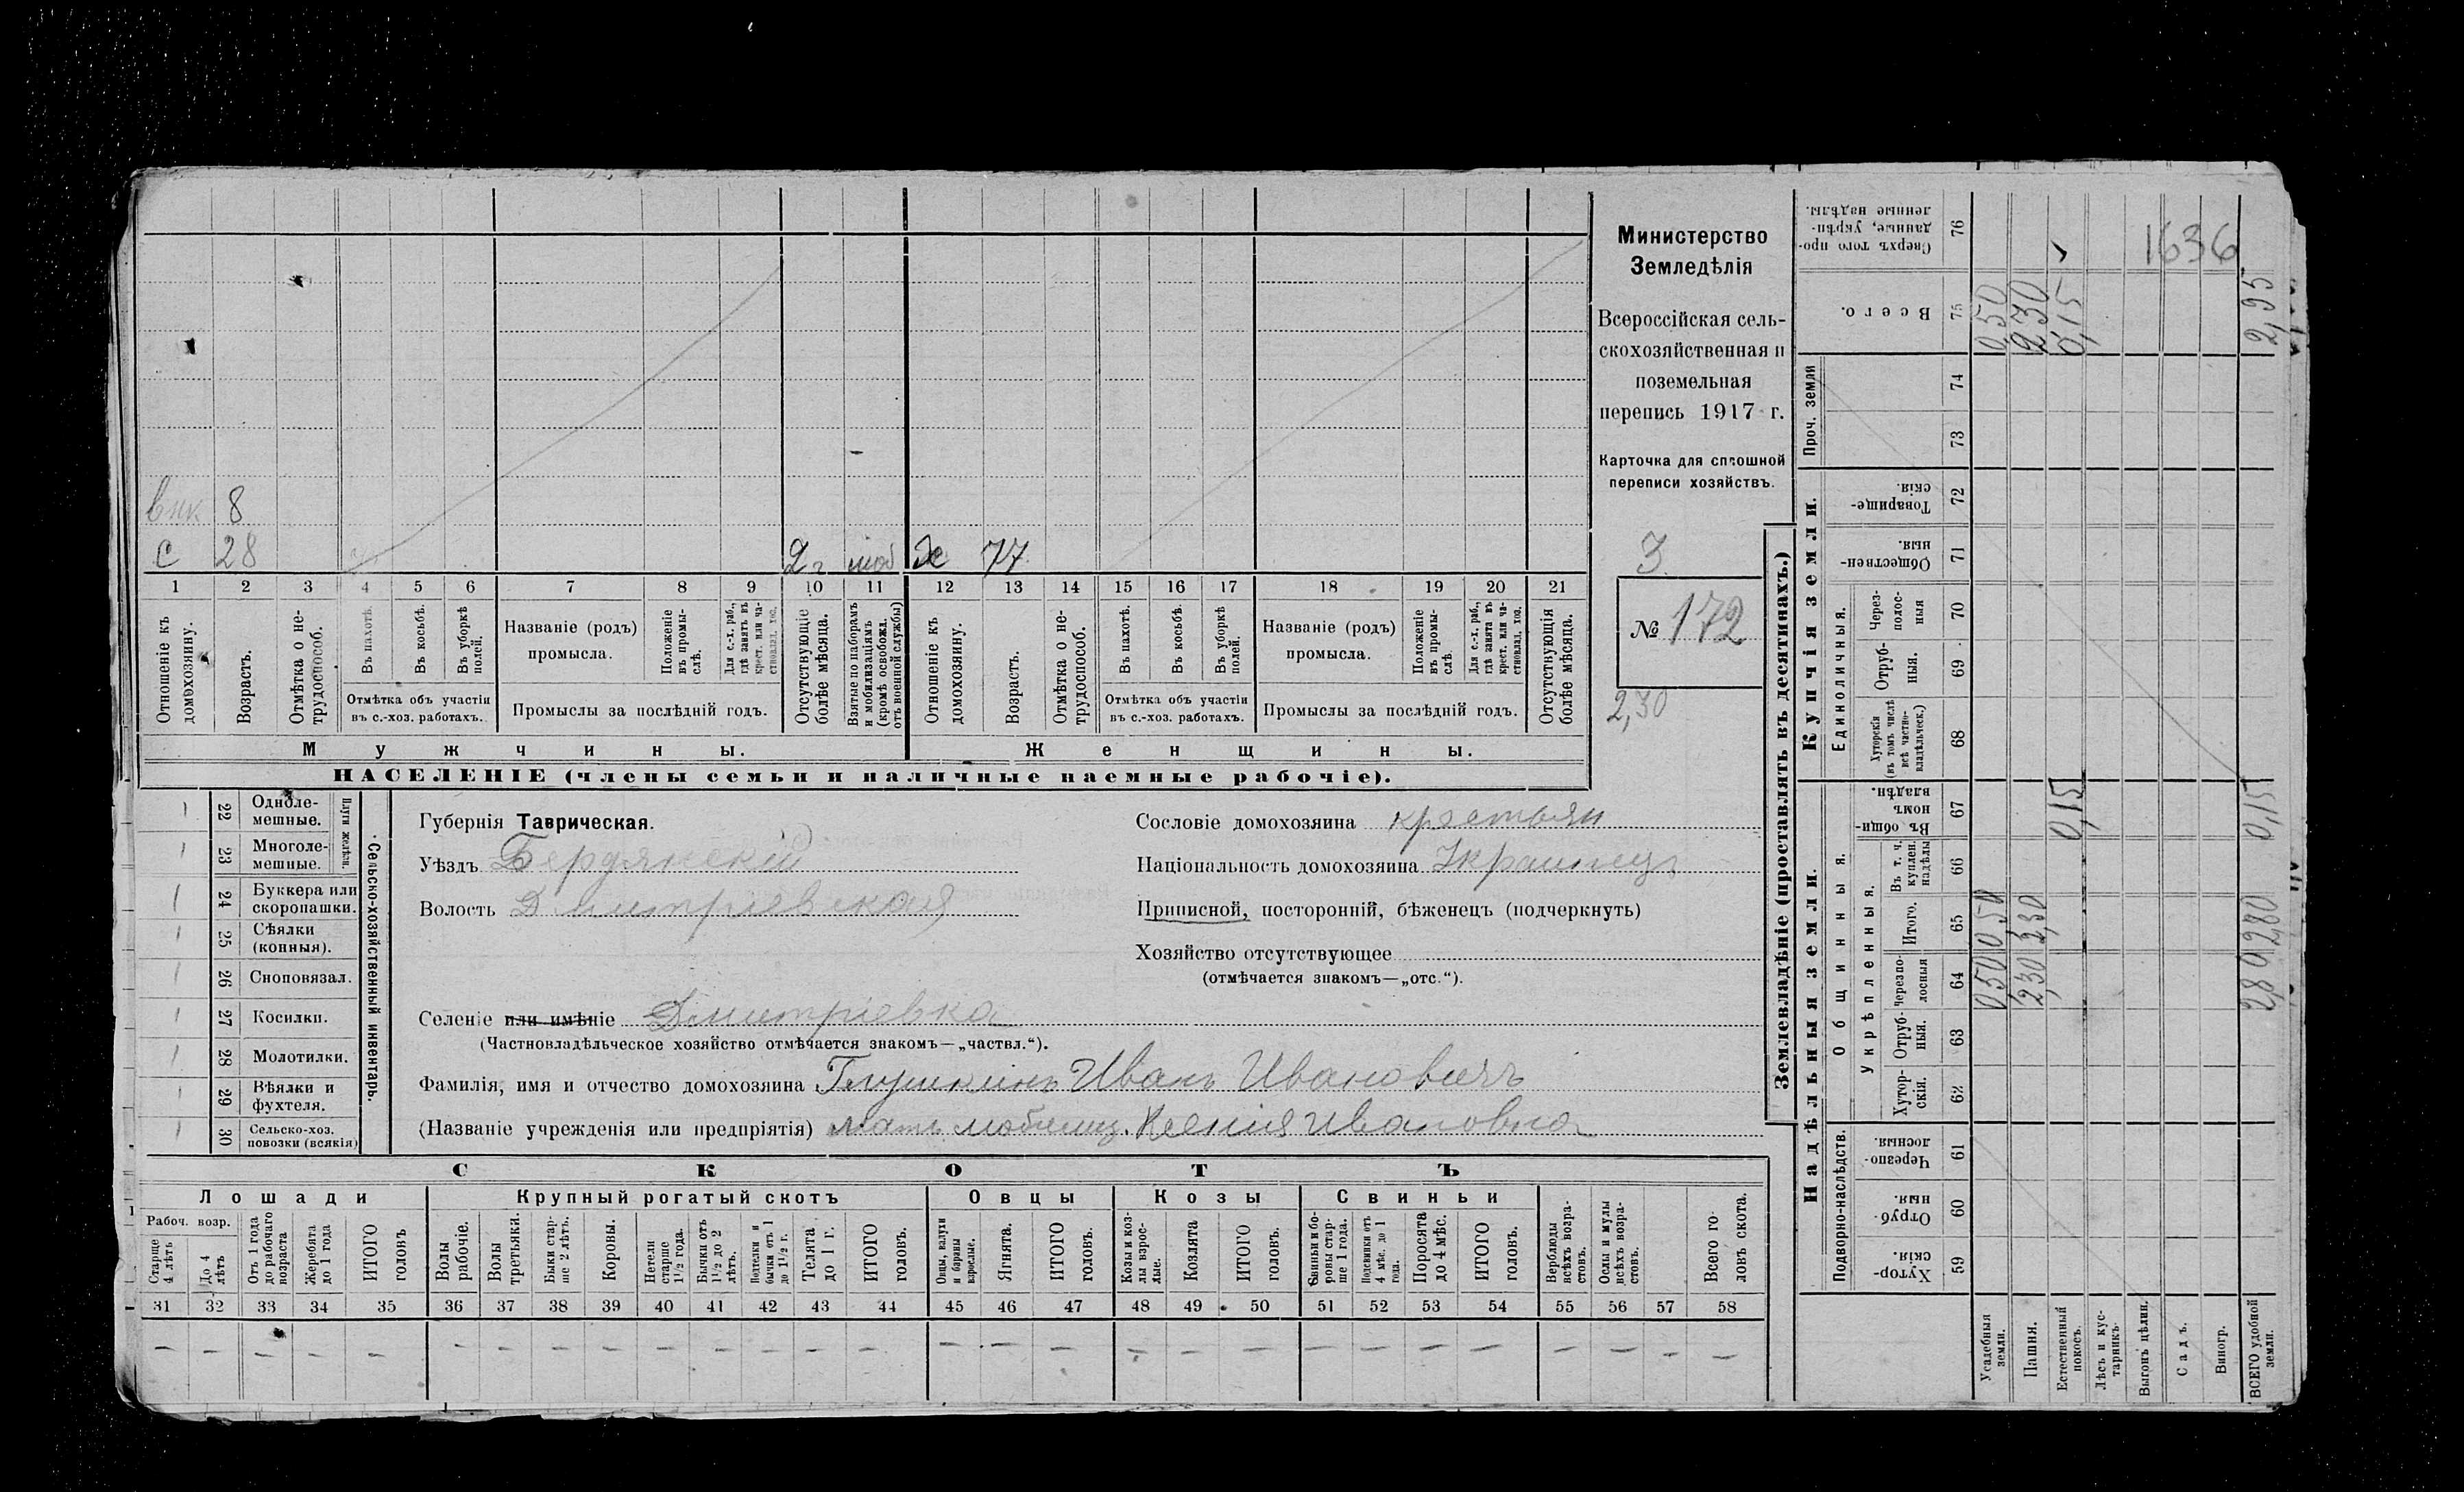 внк 8
с 28 2 г моб х 77
1 2 3 4 5 6 7 8 9 10 11 12 13 14 15 16 17 18 19 20 21
Отношеніе къ домохозяину.
Возрастъ.
Отмѣтка о не-трудоспособ.
Въ пахотѣ.
Въ косьбѣ.
Въ уборкѣ полей.
Отмѣтка объ участіи
въ с.-хоз. работахъ.
Названіе (родъ)
промысла.
Положеніе въ промы-слѣ.
Для с.-х. раб., гдѣ занятъ въ крест. или ча-стновлад. хоз.
Промыслы за послѣдній годъ.
Отсутствующіе болѣе мѣсяца.
Взятые по наборамъ и мобилизаціямъ (кромѣ освобожд. отъ военной службы)
Отношеніе къ домохозяину.
Возрастъ.
Отмѣтка о не-трудоспособ.
Въ пахотѣ.
Въ косьбѣ.
Въ уборкѣ полей.
Отмѣтка объ участіи
въ с.-хоз. работахъ.
Названіе (родъ)
промысла.
Положеніе въ промы-слѣ.
Для с.-х. раб., гдѣ занята въ крест. или ча-стновлад. хоз.
Промыслы за послѣдній годъ.
Отсутствующія болѣе мѣсяца.
Мужчины. Женщины.
НАСЕЛЕНІЕ (члены семьи и наличные наемные рабочіе).
Министерство
Земледѣлія
Всероссійская сель-
скохозяйственная и
поземельная
перепись 1917 г.
Карточка для сплошной
переписи хозяйствъ.
3
№ 172
2,30
22 Одноле-мешные.
23 Многоле-мешные.
Плуги желѣзн.
24 Буккера или скоропашки.
25 Сѣялки (конныя).
26 Сноповязал.
27 Косилки.
28 Молотилки.
29 Вѣялки и фухтеля.
30 Сельско-хоз. повозки (всякія)
Сельско-хозяйственный инвентарь.
Губернія Таврическая.
Уѣздъ Бердянскій
Волость Дмитріевская
Селеніе или имѣніе Дмитріевка
(Частновладѣльческое хозяйство отмѣчается знакомъ—„частвл.“).
Фамилія, имя и отчество домохозяина Глушкинъ Иванъ Ивановичъ
(Названіе учрежденія или предпріятія) мать мобилиз. Ксенія Ивановна
Сословіе домохозяина крестьян
Національность домохозяина Украинецъ
Приписной, посторонній, бѣженецъ (подчеркнуть)
Хозяйство отсутствующее
(отмѣчается знакомъ—„отс.“).
СКОТЪ
Лошади Крупный рогатый скотъ Овцы Козы Свиньи
Рабоч. возр.
Старше 4 лѣтъ
До 4 лѣтъ
Отъ 1 года до рабочаго возраста
Жеребята до 1 года
ИТОГО головъ
Волы рабочіе.
Волы третьяки.
Быки стар-ше 2 лѣтъ.
Коровы.
Нетели старше 1½ года.
Бычки отъ 1½ до 2 лѣтъ.
Подтелки и бычки отъ 1 до 1½ г.
Телята до 1 г.
ИТОГО головъ.
Овцы, валухи и бараны взрослые.
Ягнята.
ИТОГО головъ.
Козы и коз-лы взрос-лые.
Козлята
ИТОГО головъ.
Свиньи и бо-ровы стар-ше 1 года.
Подсвинки отъ 4 мѣс. до 1 года.
Поросята до 4 мѣс.
ИТОГО головъ.
Верблюды всѣхъ возра-стовъ.
Ослы и мулы всѣхъ возра-стовъ.
Всего го-ловъ скота.
31 32 33 34 35 36 37 38 39 40 41 42 43 44 45 46 47 48 49 50 51 52 53 54 55 56 57 58
— — — — — — — — — — — — — — — — — — — — — — — — — — — —
Землевладѣніе (проставлять въ десятинахъ.)
Надѣльныя земли. Купчія земли.
Подворно-наслѣдств. Общинныя. Единоличныя. Проч. земли
Укрѣпленныя.
Хутор-скія. 59
Отруб-ныя. 60
Черезпо-лосныя. 61
Хутор-скія. 62
Отруб-ныя. 63
Черезпо-лосныя 64
Итого. 65
Въ т. ч. куплен. надѣлы 66
Въ общи-номъ владѣн. 67
Хуторскія (въ томъ числѣ всѣ частно-владѣльческ.) 68
Отруб-ныя. 69
Через-полос-ныя 70
Обществен-ныя. 71
Товарище-скія. 72
73
74
Всего. 75
Сверхъ того про-данные, укрѣп-ленные надѣлы. 76
Усадебныя земли. 0,50 0,50 0,50
Пашня. 2,30 2,30 2,30
Естественный покосъ. 0,15 0,15
Лѣсъ и кус-тарникъ.
Выгонъ цѣлин.
Садъ.
Виногр.
ВСЕГО удобной земли. 2,80 2,80 0,15 2,95
1636